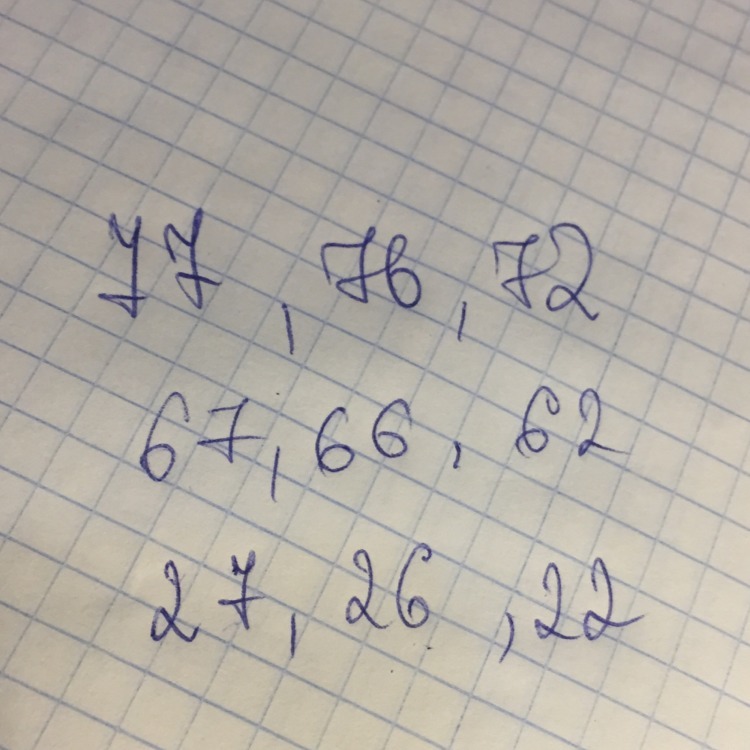 77, 76, 72
67, 66, 62
27, 26, 22